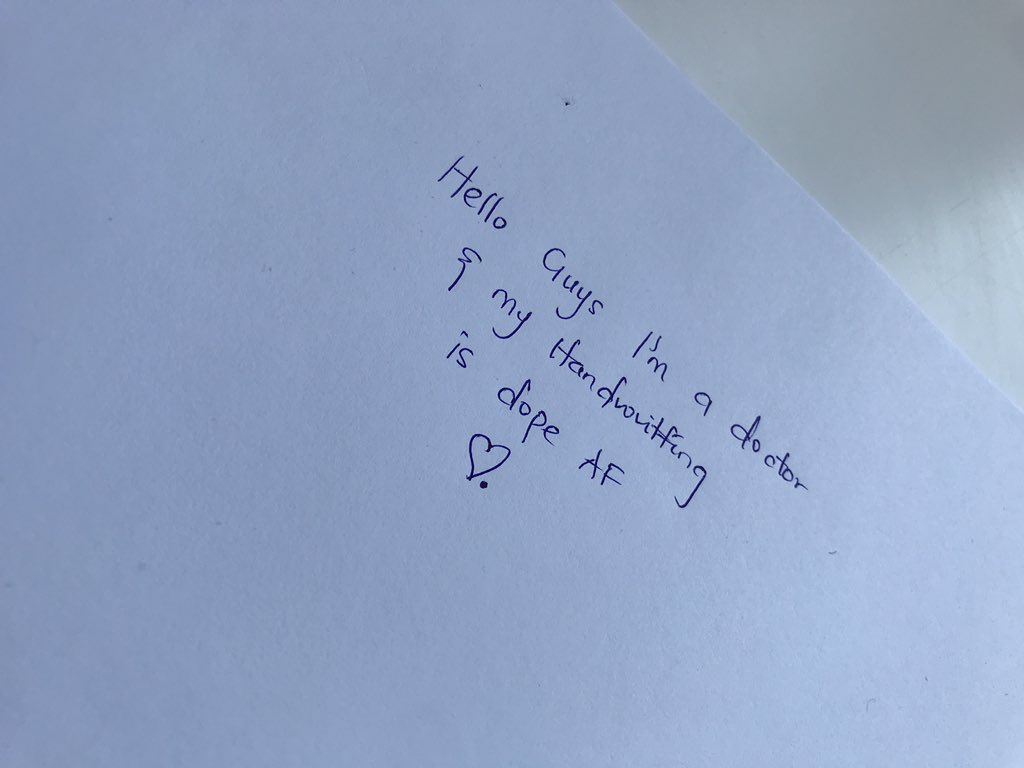 Hello Guys I'm a doctor
& my Handwritting
is dope AF